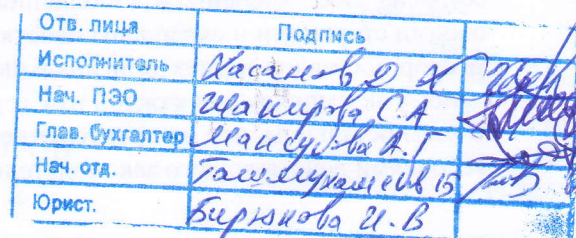 Отв. лица Подпись
Исполнитель Хасанов Д Х
Нач. ПЭО Шакирова С.А
Глав. бухгалтер Мансурова А.Г
Нач. отд. Ташмухамедов Б
Юрист. Бирюкова И.В